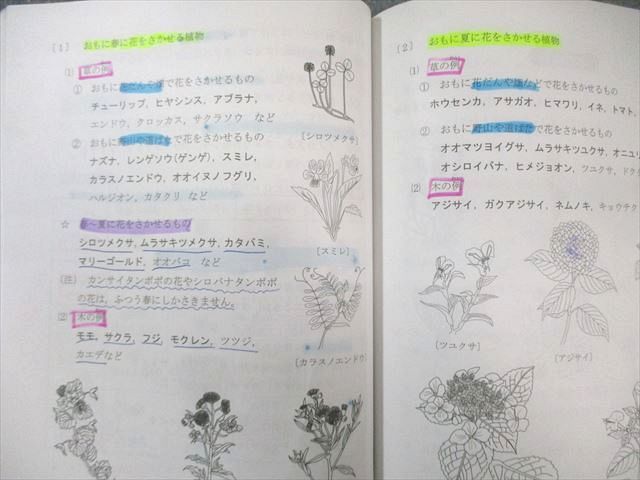 〔1〕 おもに春に花をさかせる植物
(1) 草の例
① おもに花だんや畑で花をさかせるもの
チューリップ, ヒヤシンス, アブラナ,
エンドウ, クロッカス, サクラソウ など
② おもに野山や道ばたで花をさかせるもの
ナズナ, レンゲソウ(ゲンゲ), スミレ,
カラスノエンドウ, オオイヌノフグリ,
ハルジオン, カタクリ など
☆ 春〜夏に花をさかせるもの
シロツメクサ, ムラサキツメクサ, カタバミ,
マリーゴールド, オオバコ など
(注) カンサイタンポポの花やシロバナタンポポ
の花は, ふつう春にしかさきません。
② 木の例
モモ, サクラ, フジ, モクレン, ツツジ,
カエデなど
[シロツメクサ]
[スミレ]
[カラスノエンドウ]
〔2〕 おもに夏に花をさかせる植物
(1) 草の例
① おもに花だんや畑などで花をさかせるもの
ホウセンカ, アサガオ, ヒマワリ, イネ, トマト,
② おもに野山や道ばたで花をさかせるもの
オオマツヨイグサ, ムラサキツユクサ, オニユリ
オシロイバナ, ヒメジョオン, ツユクサ, ドク
(2) 木の例
アジサイ, ガクアジサイ, ネムノキ, キョウチク
[ツユクサ]
[アジサイ]